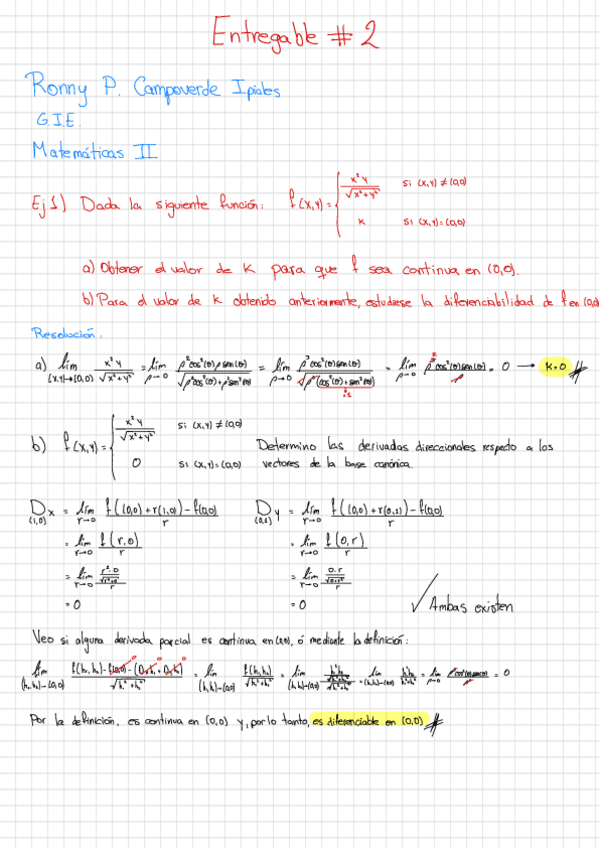 Entregable # 2
Ronny P. Campoverde Ipiales
G.I.E.
Matemáticas II
Ej 1) Dada la siguiente función: f(x,y) = { x²y / √(x²+y²) si (x,y) ≠ (0,0)
k si (x,y) = (0,0)
a) Obtener el valor de k para que f sea continua en (0,0).
b) Para el valor de k obtenido anteriormente, estudiese la diferenciabilidad de f en (0,0)
Resolución.
a) lím (x,y)→(0,0) x²y / √(x²+y²) = lím ρ→0 ρ²cos²(θ) ρ sen(θ) / √(ρ²cos²(θ)+ρ²sen²(θ)) = lím ρ→0 ρ³cos²(θ)sen(θ) / √(ρ²(cos²(θ)+sen²(θ))) = lím ρ→0 ρ³cos²(θ)sen(θ) / ρ = 0 → k=0 //
b) f(x,y) = { x²y / √(x²+y²) si (x,y) ≠ (0,0) Determino las derivadas direccionales respecto a los
0 si (x,y) = (0,0) vectores de la base canónica.
Dx (1,0) = lím r→0 f((0,0)+r(1,0)) - f(0,0) / r Dy (0,1) = lím r→0 f((0,0)+r(0,1)) - f(0,0) / r
= lím r→0 f(r,0) / r = lím r→0 f(0,r) / r
= lím r→0 r²·0 / √(r²+0) / r = lím r→0 0·r / √(0+r²) / r
= 0 = 0 ✓ Ambas existen
Veo si alguna derivada parcial es continua en (0,0), ó mediante la definición:
lím (h₁,h₂)→(0,0) f(h₁,h₂) - f(0,0) - (0·h₁ + 0·h₂) / √(h₁²+h₂²) = lím (h₁,h₂)→(0,0) f(h₁,h₂) / √(h₁²+h₂²) = lím (h₁,h₂)→(0,0) h₁²h₂ / √(h₁²+h₂²) / √(h₁²+h₂²) = lím (h₁,h₂)→(0,0) h₁²h₂ / h₁²+h₂² = lím ρ→0 = 0
Por la definición, es continua en (0,0) y, por lo tanto, es diferenciable en (0,0) //